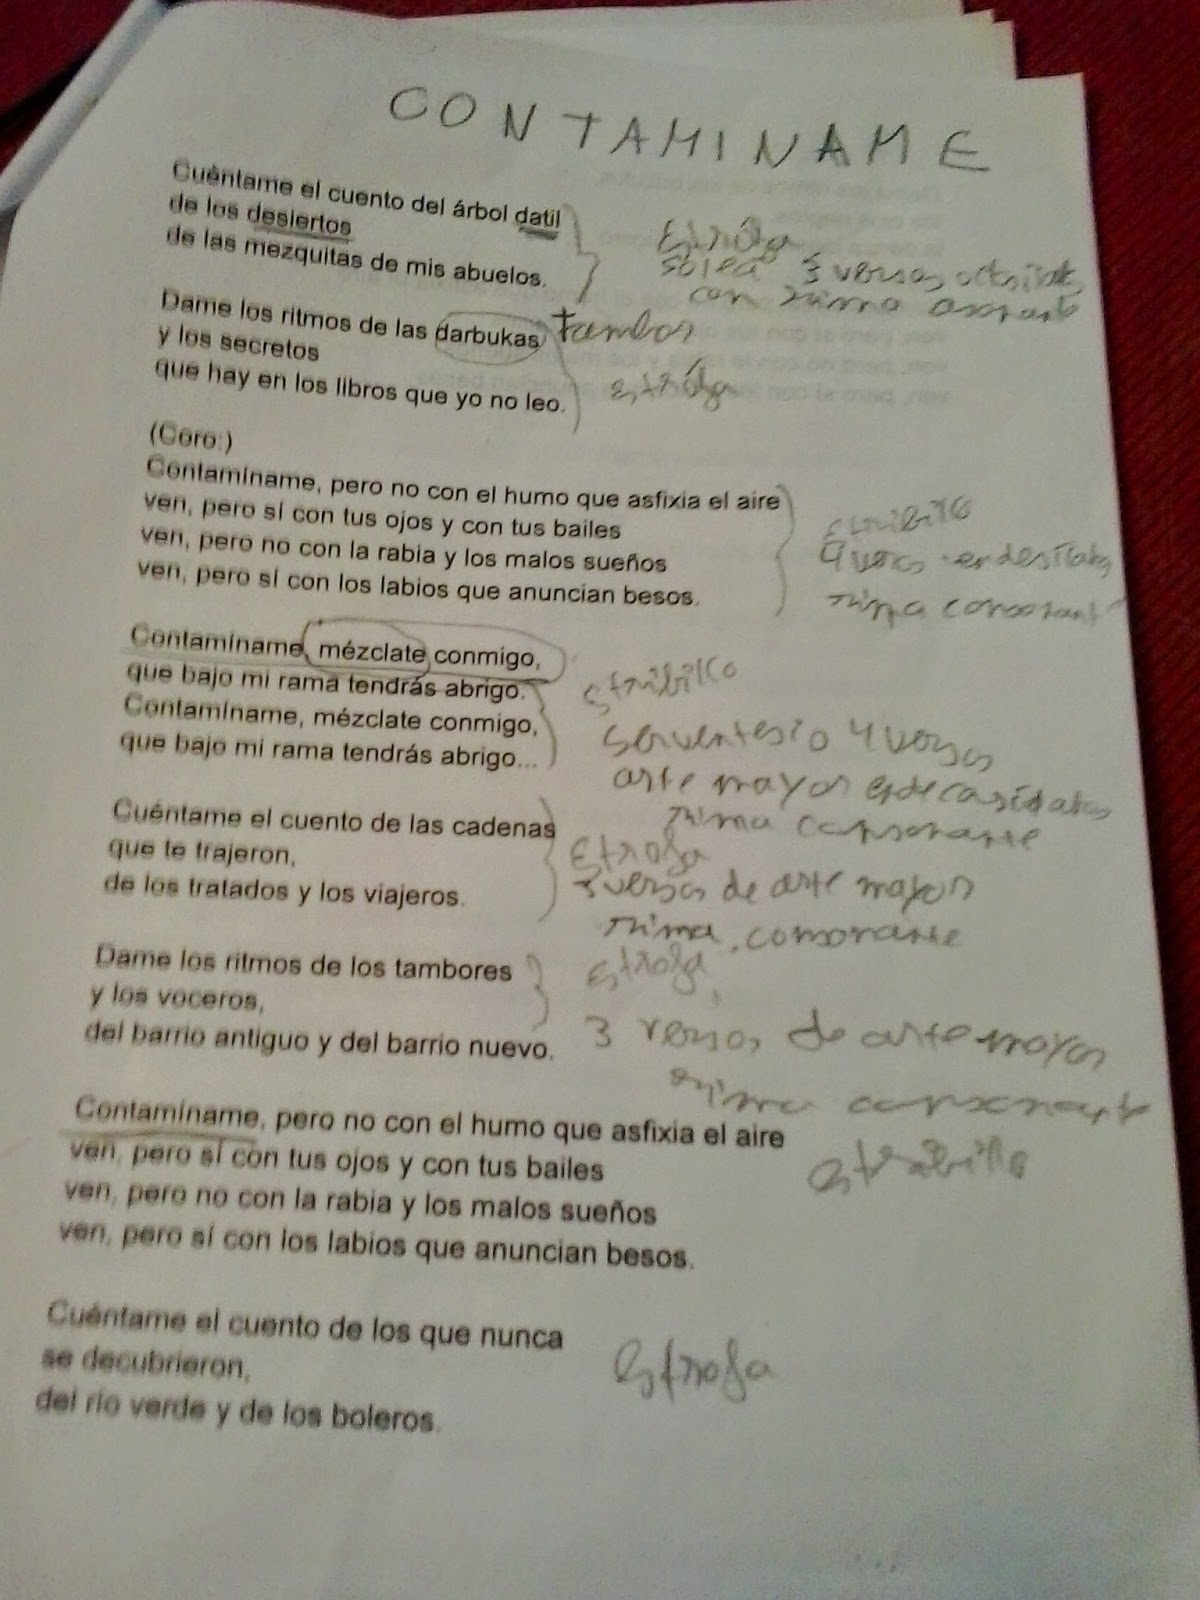 CONTAMINAME
Cuéntame el cuento del árbol datil
de los desiertos
de las mezquitas de mis abuelos.
Estrofa
solea 3 versos
con rima asonante
Dame los ritmos de las darbukas tambor
y los secretos
que hay en los libros que yo no leo.
estrofa
(Coro:)
Contamíname, pero no con el humo que asfixia el aire
ven, pero sí con tus ojos y con tus bailes
ven, pero no con la rabia y los malos sueños
ven, pero sí con los labios que anuncian besos.
Estribillo
4 versos
rima consonant
Contamíname, mézclate conmigo,
que bajo mi rama tendrás abrigo.
Contamíname, mézclate conmigo,
que bajo mi rama tendrás abrigo...
estribillo
serventesio 4 versos
arte mayor
rima consonante
Cuéntame el cuento de las cadenas
que te trajeron,
de los tratados y los viajeros.
Estrofa
3 versos de arte mayor
rima consonante
Dame los ritmos de los tambores
y los voceros,
del barrio antiguo y del barrio nuevo.
estrofa
3 versos de arte mayor
rima consonante
Contamíname, pero no con el humo que asfixia el aire
ven, pero sí con tus ojos y con tus bailes
ven, pero no con la rabia y los malos sueños
ven, pero sí con los labios que anuncian besos.
estribillo
Cuéntame el cuento de los que nunca
se decubrieron,
del río verde y de los boleros.
estrofa